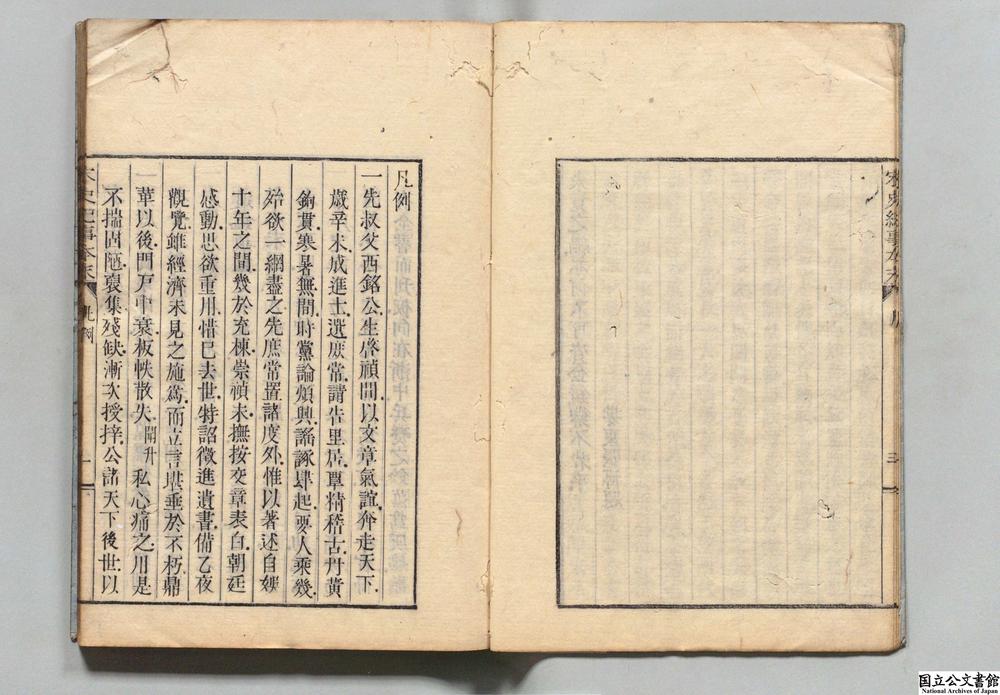 宋史紀事本末
三
凡例
一先叔父西銘公生啓禎間以文章氣誼奔走天下
歲辛未成進士選庶常請告里居覃精稽古丹黃
鉤貫寒暑無間時黨論煩興謠諑肆起要人乘幾
殆欲一網盡之先庶常置諸度外惟以著述自娛
十年之間幾於充棟崇禎末撫按交章表白朝廷
感動思欲重用惜已去世特詔徵進遺書備乙夜
觀覽雖經濟未見之施爲而立言堪垂於不朽鼎
一革以後門戸中衰板帙散失開升私心痛之用是
不揣固陋裒集殘缺漸次授梓公諸天下後世以
宋史紀事本末
凡例
一
国立公文書館
National Archives of Japan